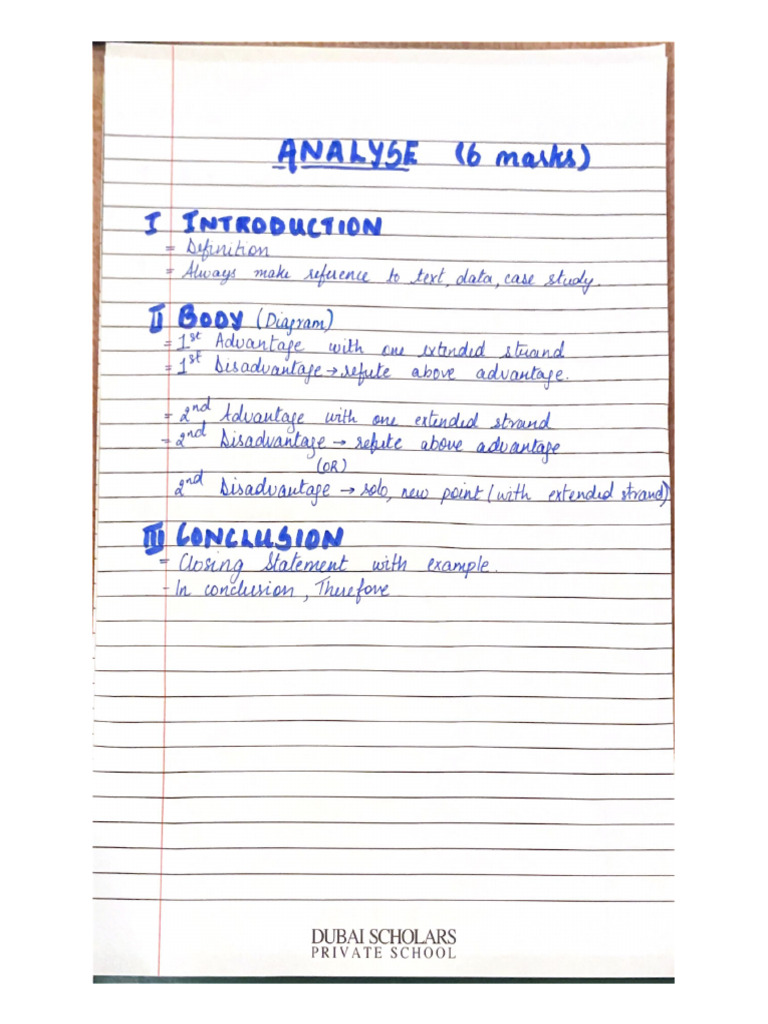 ANALYSE (6 marks)
I INTRODUCTION
= Definition
= Always make reference to text, data, case study.
II BODY (Diagram)
= 1st Advantage with one extended strand
= 1st Disadvantage → refute above advantage.
= 2nd Advantage with one extended strand
- 2nd Disadvantage → refute above advantage
(OR)
2nd Disadvantage → solo, new point (with extended strand)
III CONCLUSION
= Closing Statement with example.
- In conclusion, Therefore
DUBAI SCHOLARS
PRIVATE SCHOOL